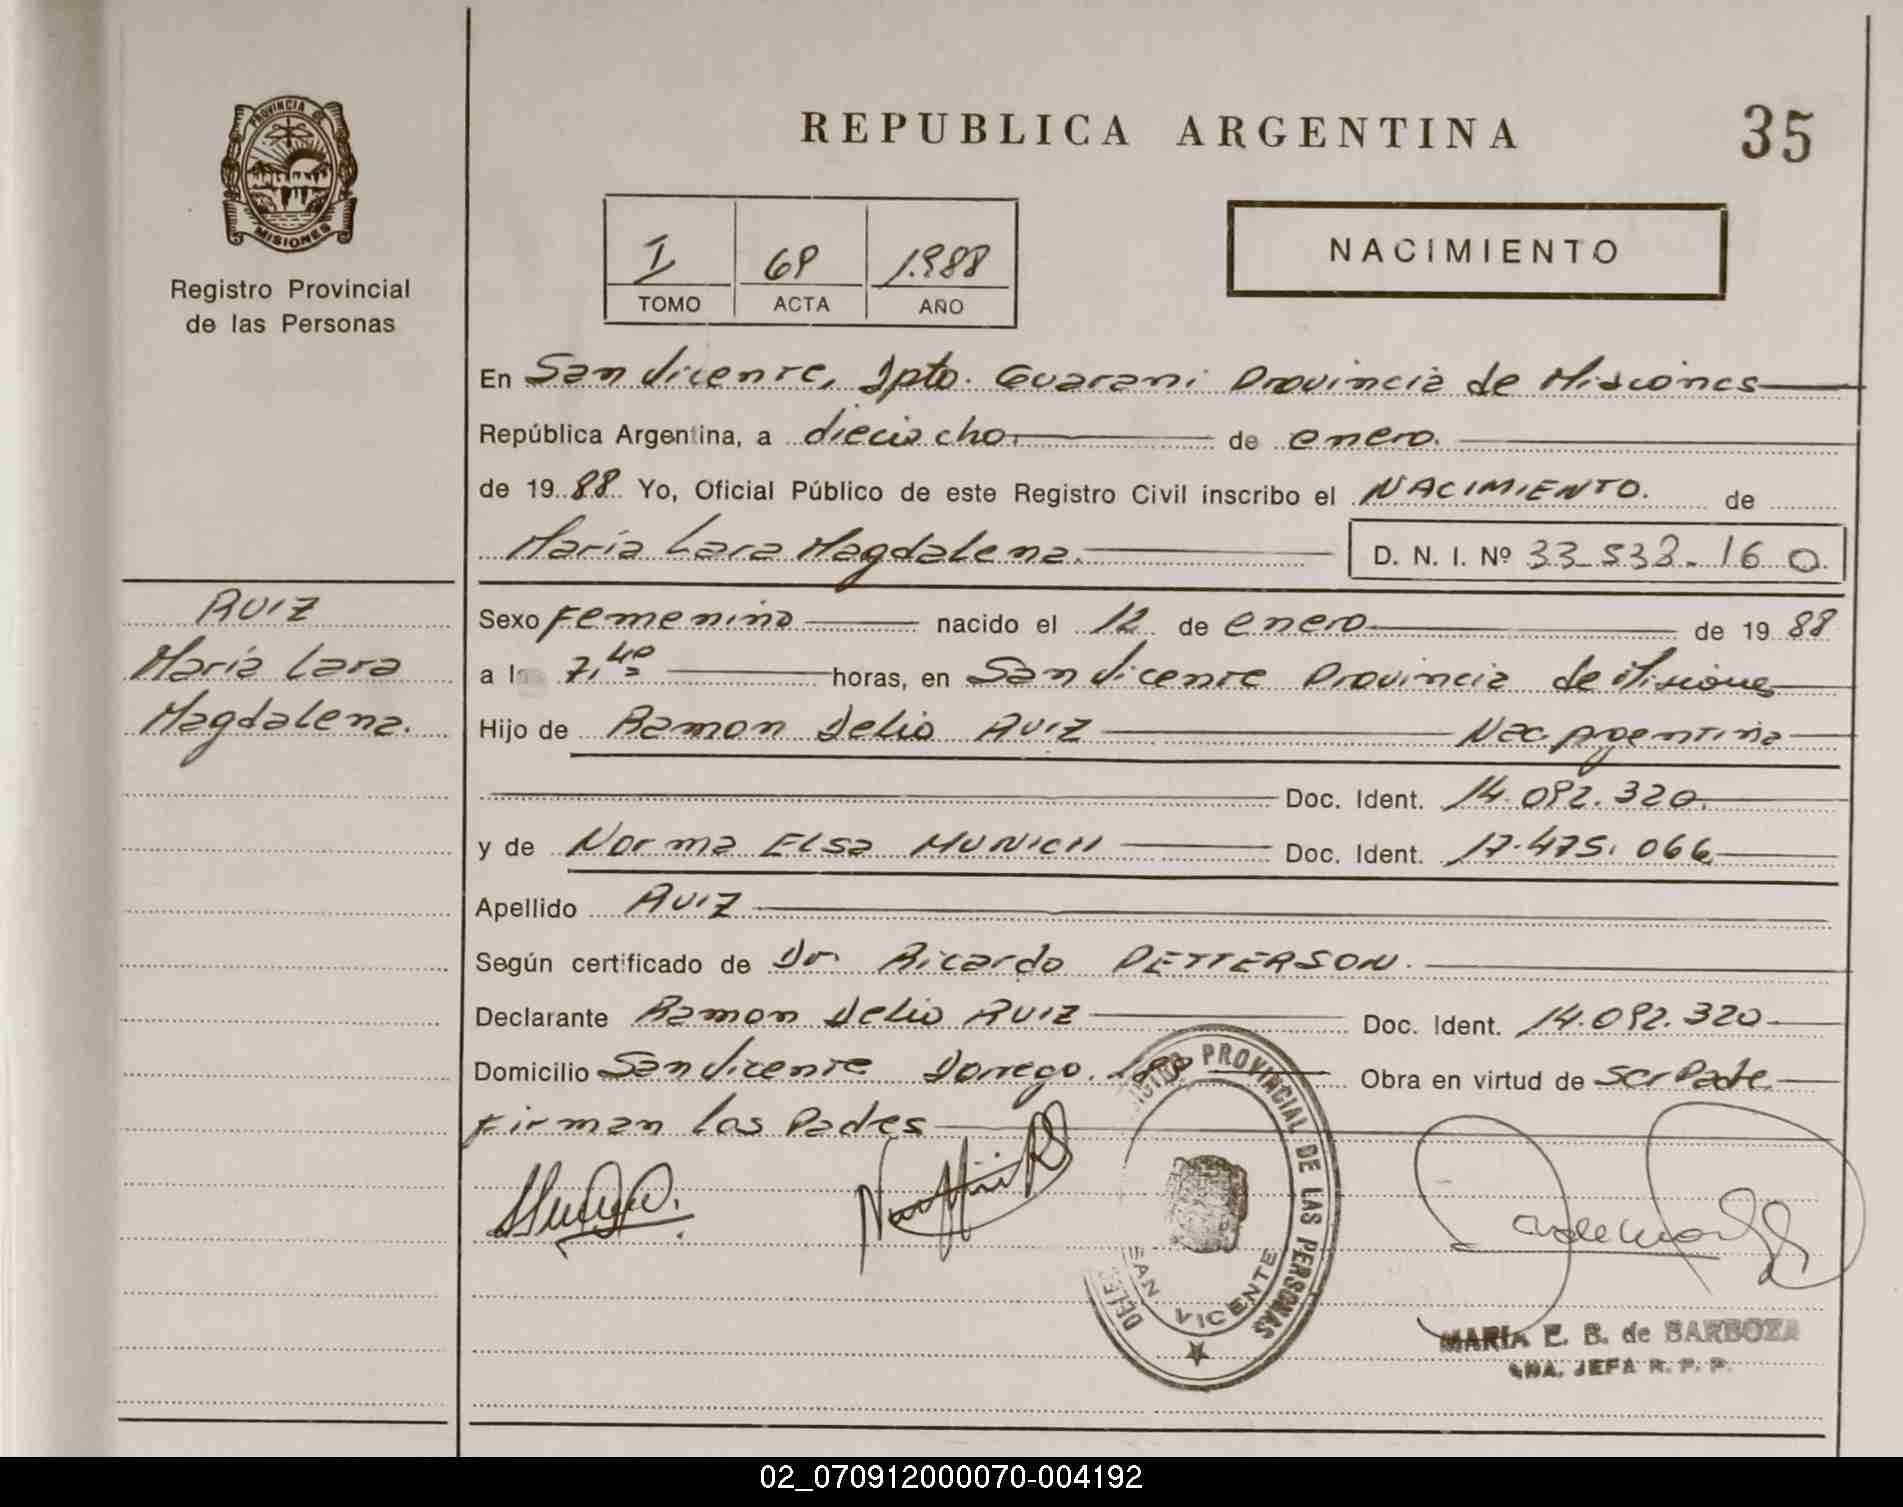 PROVINCIA DE
MISIONES
Registro Provincial
de las Personas
RUIZ
María Lara
Magdalena.
REPUBLICA ARGENTINA
35
I 69 1.988
TOMO ACTA AÑO
NACIMIENTO
En San Vicente, Dpto. Guarani Provincia de Misiones
República Argentina, a dieciocho. de enero.
de 19 88 Yo, Oficial Público de este Registro Civil inscribo el NACIMIENTO. de
María Lara Magdalena. D. N. I. Nº 33.533.160
Sexo Femenino nacido el 12 de enero de 19 88
a l 7,40 horas, en San Vicente Provincia de Misiones
Hijo de Ramon Delio RUIZ Nac. Argentina
Doc. Ident. 14.092.320.
y de Norma Elsa MUNICH Doc. Ident. 17.475.066
Apellido RUIZ
Según certificado de Dr. Ricardo PETTERSON.
Declarante Ramon Delio RUIZ Doc. Ident. 14.092.320
Domicilio San Vicente Dorrego. Obra en virtud de ser Padre
Firman los Padres
PROVINCIAL DE LAS PERSONAS
SAN VICENTE
MARIA E. B. de BARBOZA
JEFA R. P. P.
02_070912000070-004192